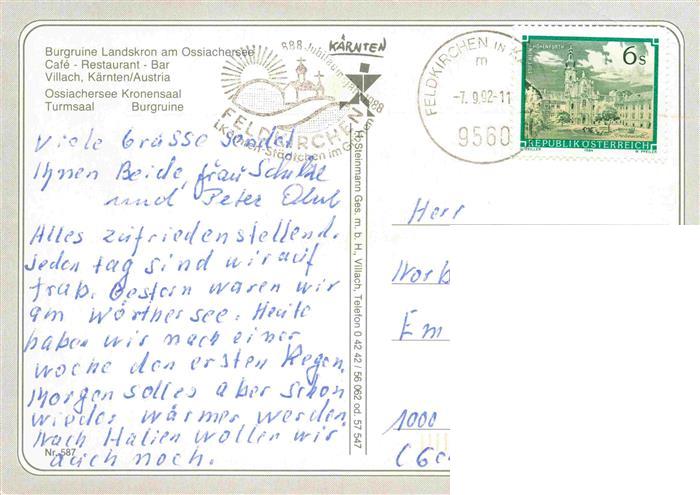 Burgruine Landskron am Ossiachersee
Café - Restaurant - Bar
Villach, Kärnten/Austria
Ossiachersee Kronensaal
Turmsaal Burgruine
888 Jubiläum 1988
KÄRNTEN
FELDKIRCHEN
FELDKIRCHEN IN K
m
-7. 9.92-11
9560
6 S
REPUBLIK ÖSTERREICH
H. Steinmann Ges. m. b. H., Villach, Telefon 0 42 42 / 56 0 62 od. 57 547
Viele Grüsse sendet
Ihnen Beide, frau Schulze
und Peter
Alles zufriedenstellend.
Jeden tag sind wir auf
trab. Gestern waren wir
am Wörthersee. Heute
haben wir nach einer
woche den ersten Regen.
Morgen solles aber schon
wieder wärmer werden.
Nach Italien wollen wir
auch noch.
Nr. 587
Herr
Norb
Em
1000